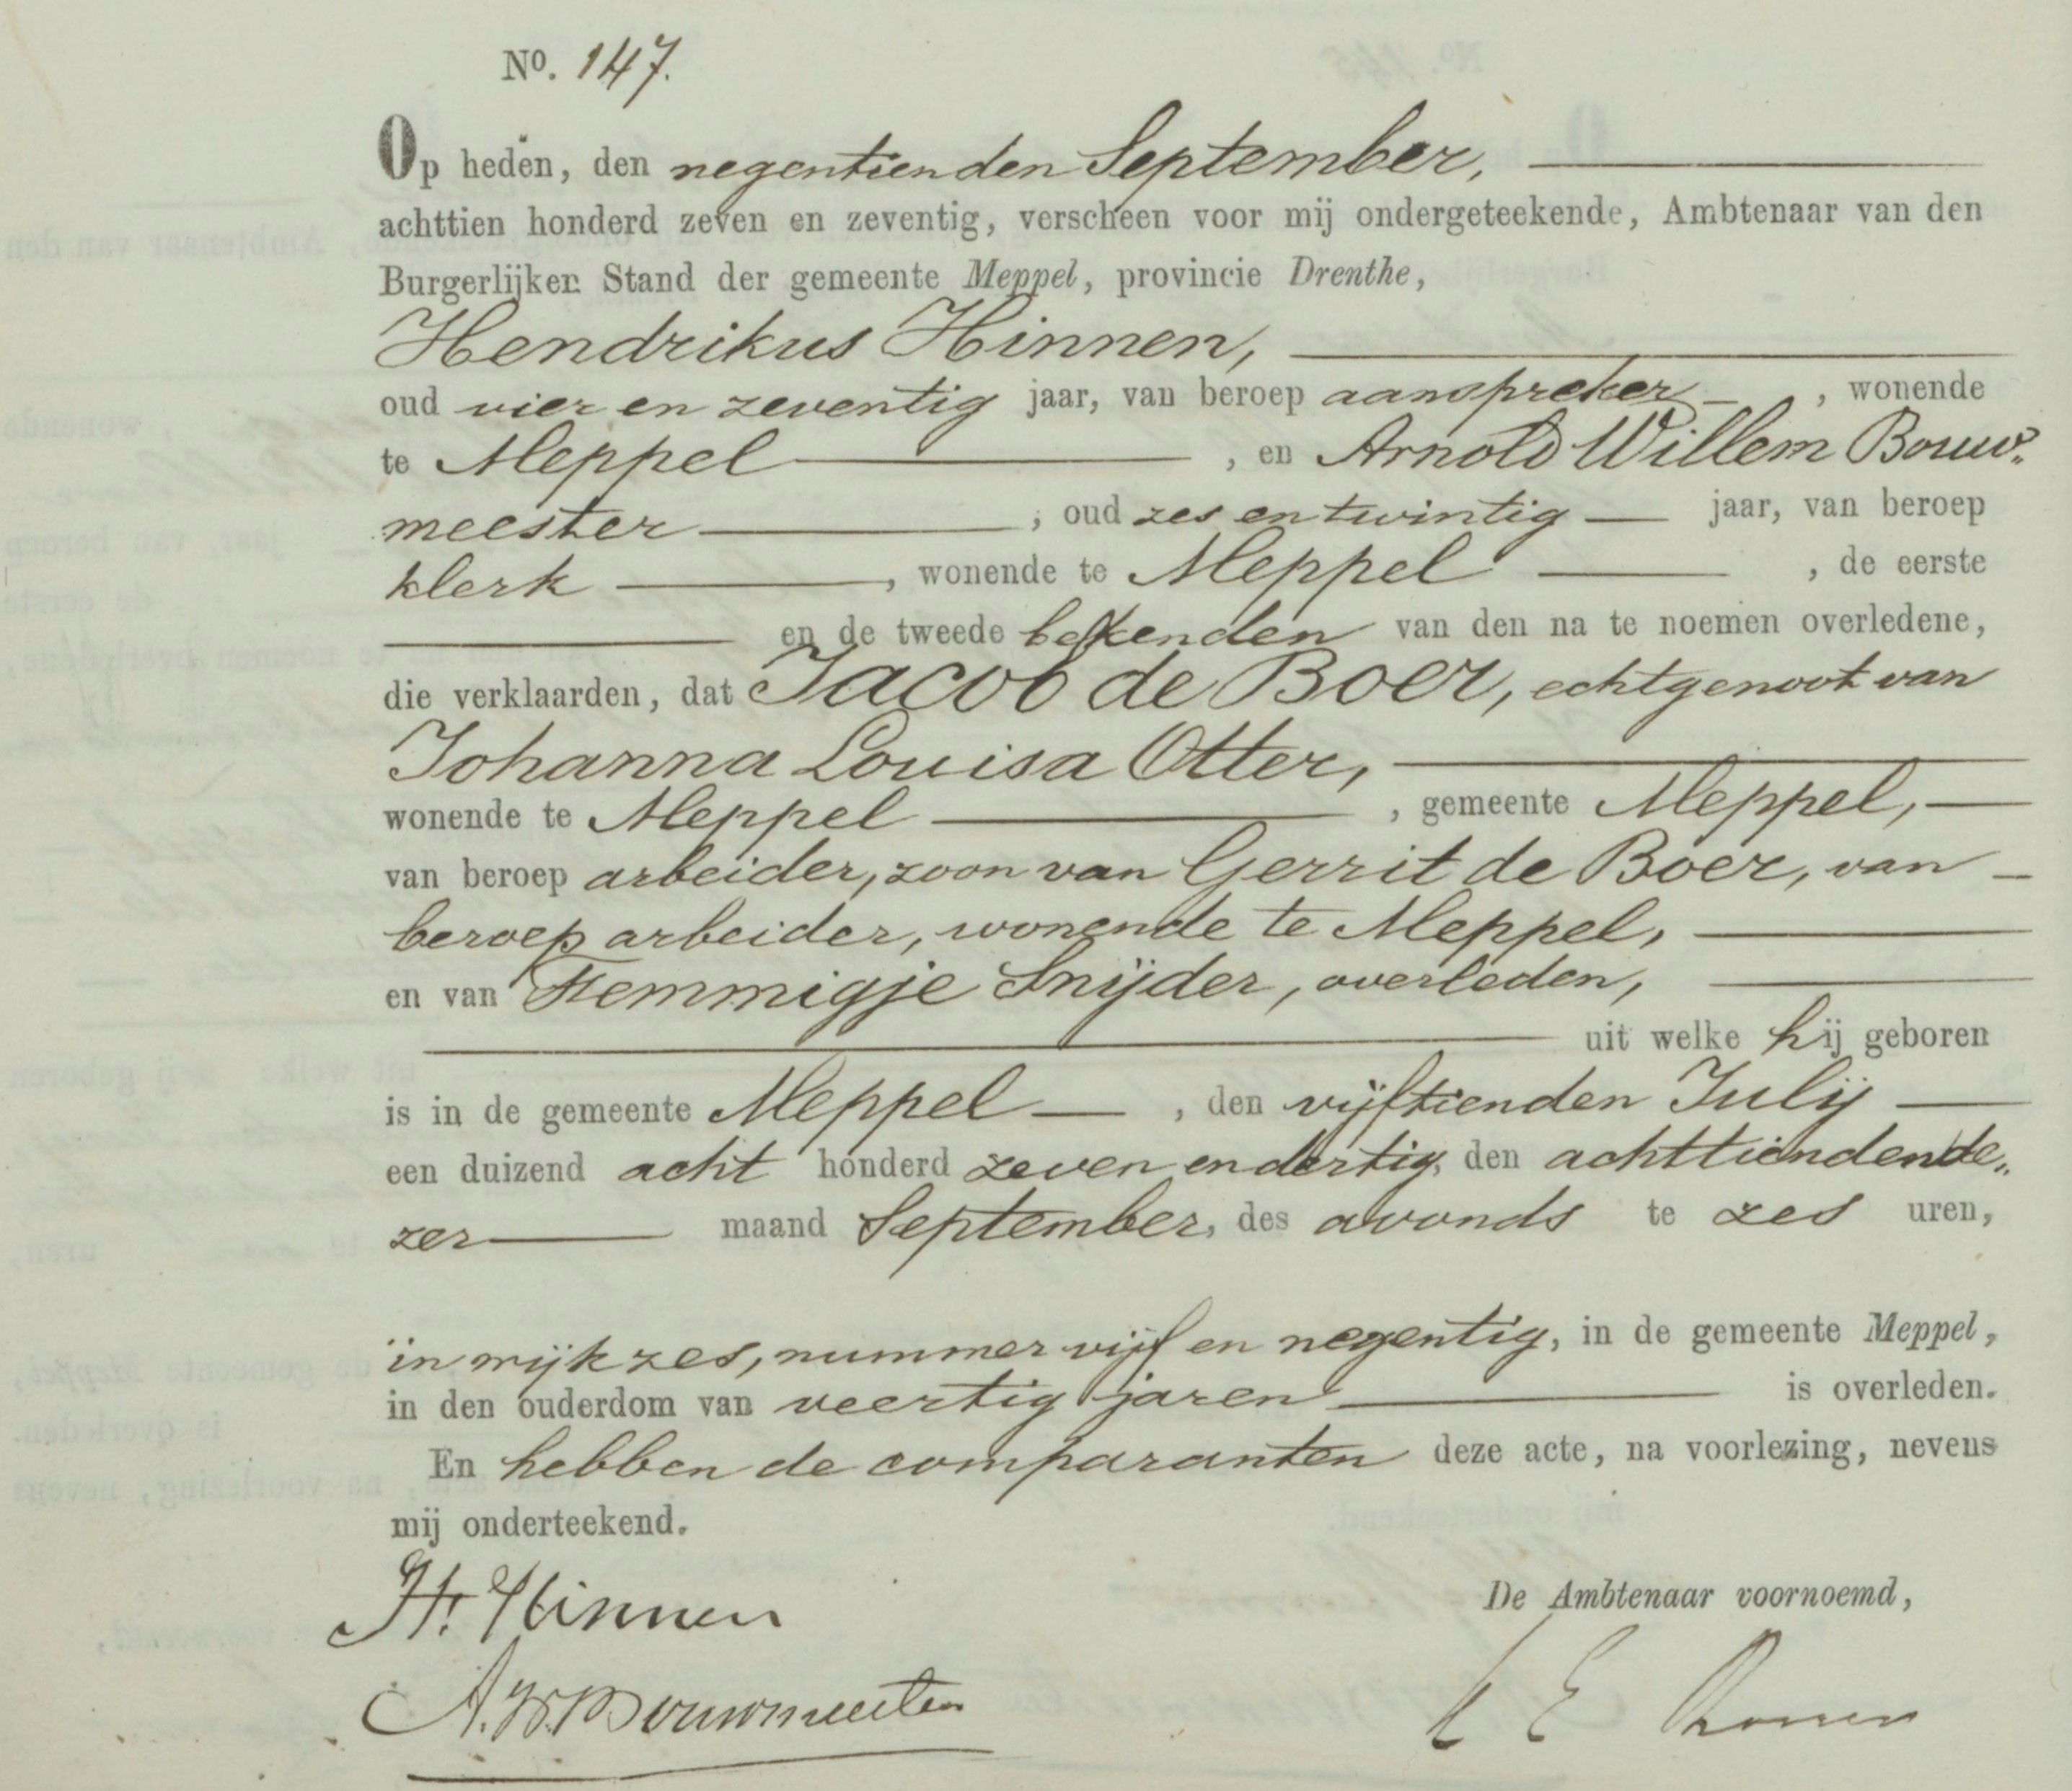 No. 147.
Op heden, den negentienden September,
achttien honderd zeven en zeventig, verscheen voor mij ondergeteekende, Ambtenaar van den
Burgerlijken Stand der gemeente Meppel, provincie Drenthe,
Hendrikus Hinnen,
oud vier en zeventig jaar, van beroep aanspreker, wonende
te Meppel, en Arnold Willem Bouw„
meester, oud zes en twintig jaar, van beroep
klerk, wonende te Meppel, de eerste
en de tweede bekenden van den na te noemen overledene,
die verklaarden, dat Jacob de Boer, echtgenoot van
Johanna Louisa Otter,
wonende te Meppel, gemeente Meppel,
van beroep arbeider, zoon van Gerrit de Boer, van
beroep arbeider, wonende te Meppel,
en van Hemmigje Snijder, overleden,
uit welke hij geboren
is in de gemeente Meppel, den vijftienden Julij
een duizend acht honderd zeven en dertig, den achttienden de„
zer maand September, des avonds te zes uren,
in wijk zes, nummer vijf en negentig, in de gemeente Meppel,
in den ouderdom van veertig jaren is overleden.
En hebben de comparanten deze acte, na voorlezing, nevens
mij onderteekend.
H. Hinnen
De Ambtenaar voornoemd,
A. W. Bouwmeester